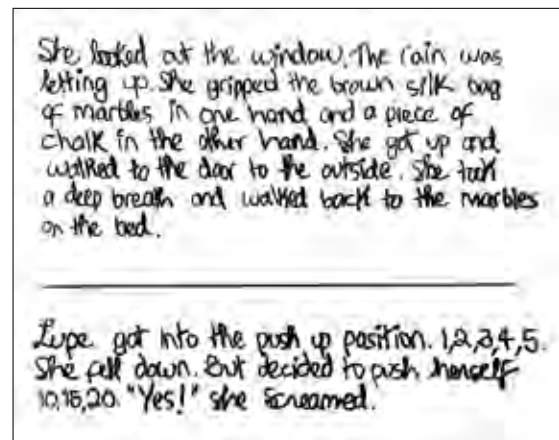 She looked at the window. The rain was
letting up. She gripped the brown silk bag
of marbles in one hand and a piece of
chalk in the other hand. She got up and
walked to the door to the outside. She took
a deep breath and walked back to the marbles
on the bed.
Lupe got into the push up position. 1,2,3,4,5.
She fell down. But decided to push herself
10,15,20. "Yes!" she screamed.